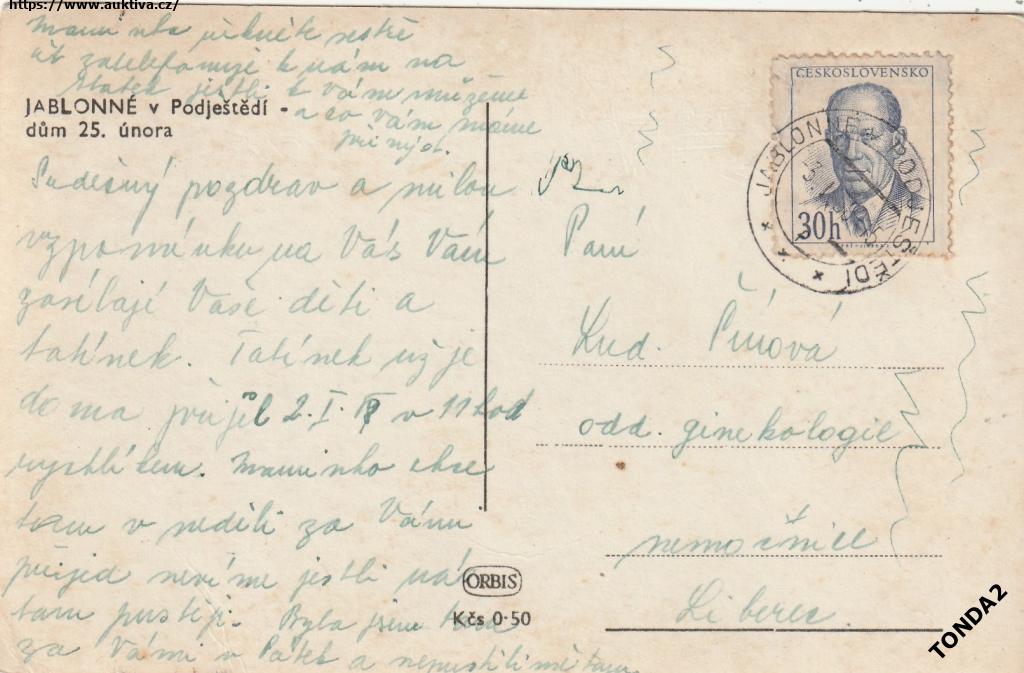 https://www.auktiva.cz/
Maminko řekněte sestře
ať zatelefonuje k nám na
statek jestli k Vám můžeme
a co Vám máme
JABLONNÉ v Podještědí -
dům 25. února
Srdečný pozdrav a milou
vzpomínku na Vás Vám
zasílají Vaše děti a
tatínek. Tatínek už je
doma přijel 2. I. v 11 hod
rychlíkem. Maminko chce
tam v neděli za Vámi
přijed nevíme jestli ná
tam pustějí. Byla jsem
za Vámi v Pátek a nepustili mě tam
ČESKOSLOVENSKO
30h
JABLONNÉ v PODJEŠTĚDÍ
Paní
Lud.
odd. ginekologie
nemocnice
Liberec
ORBIS
Kčs 0·50
TONDA2